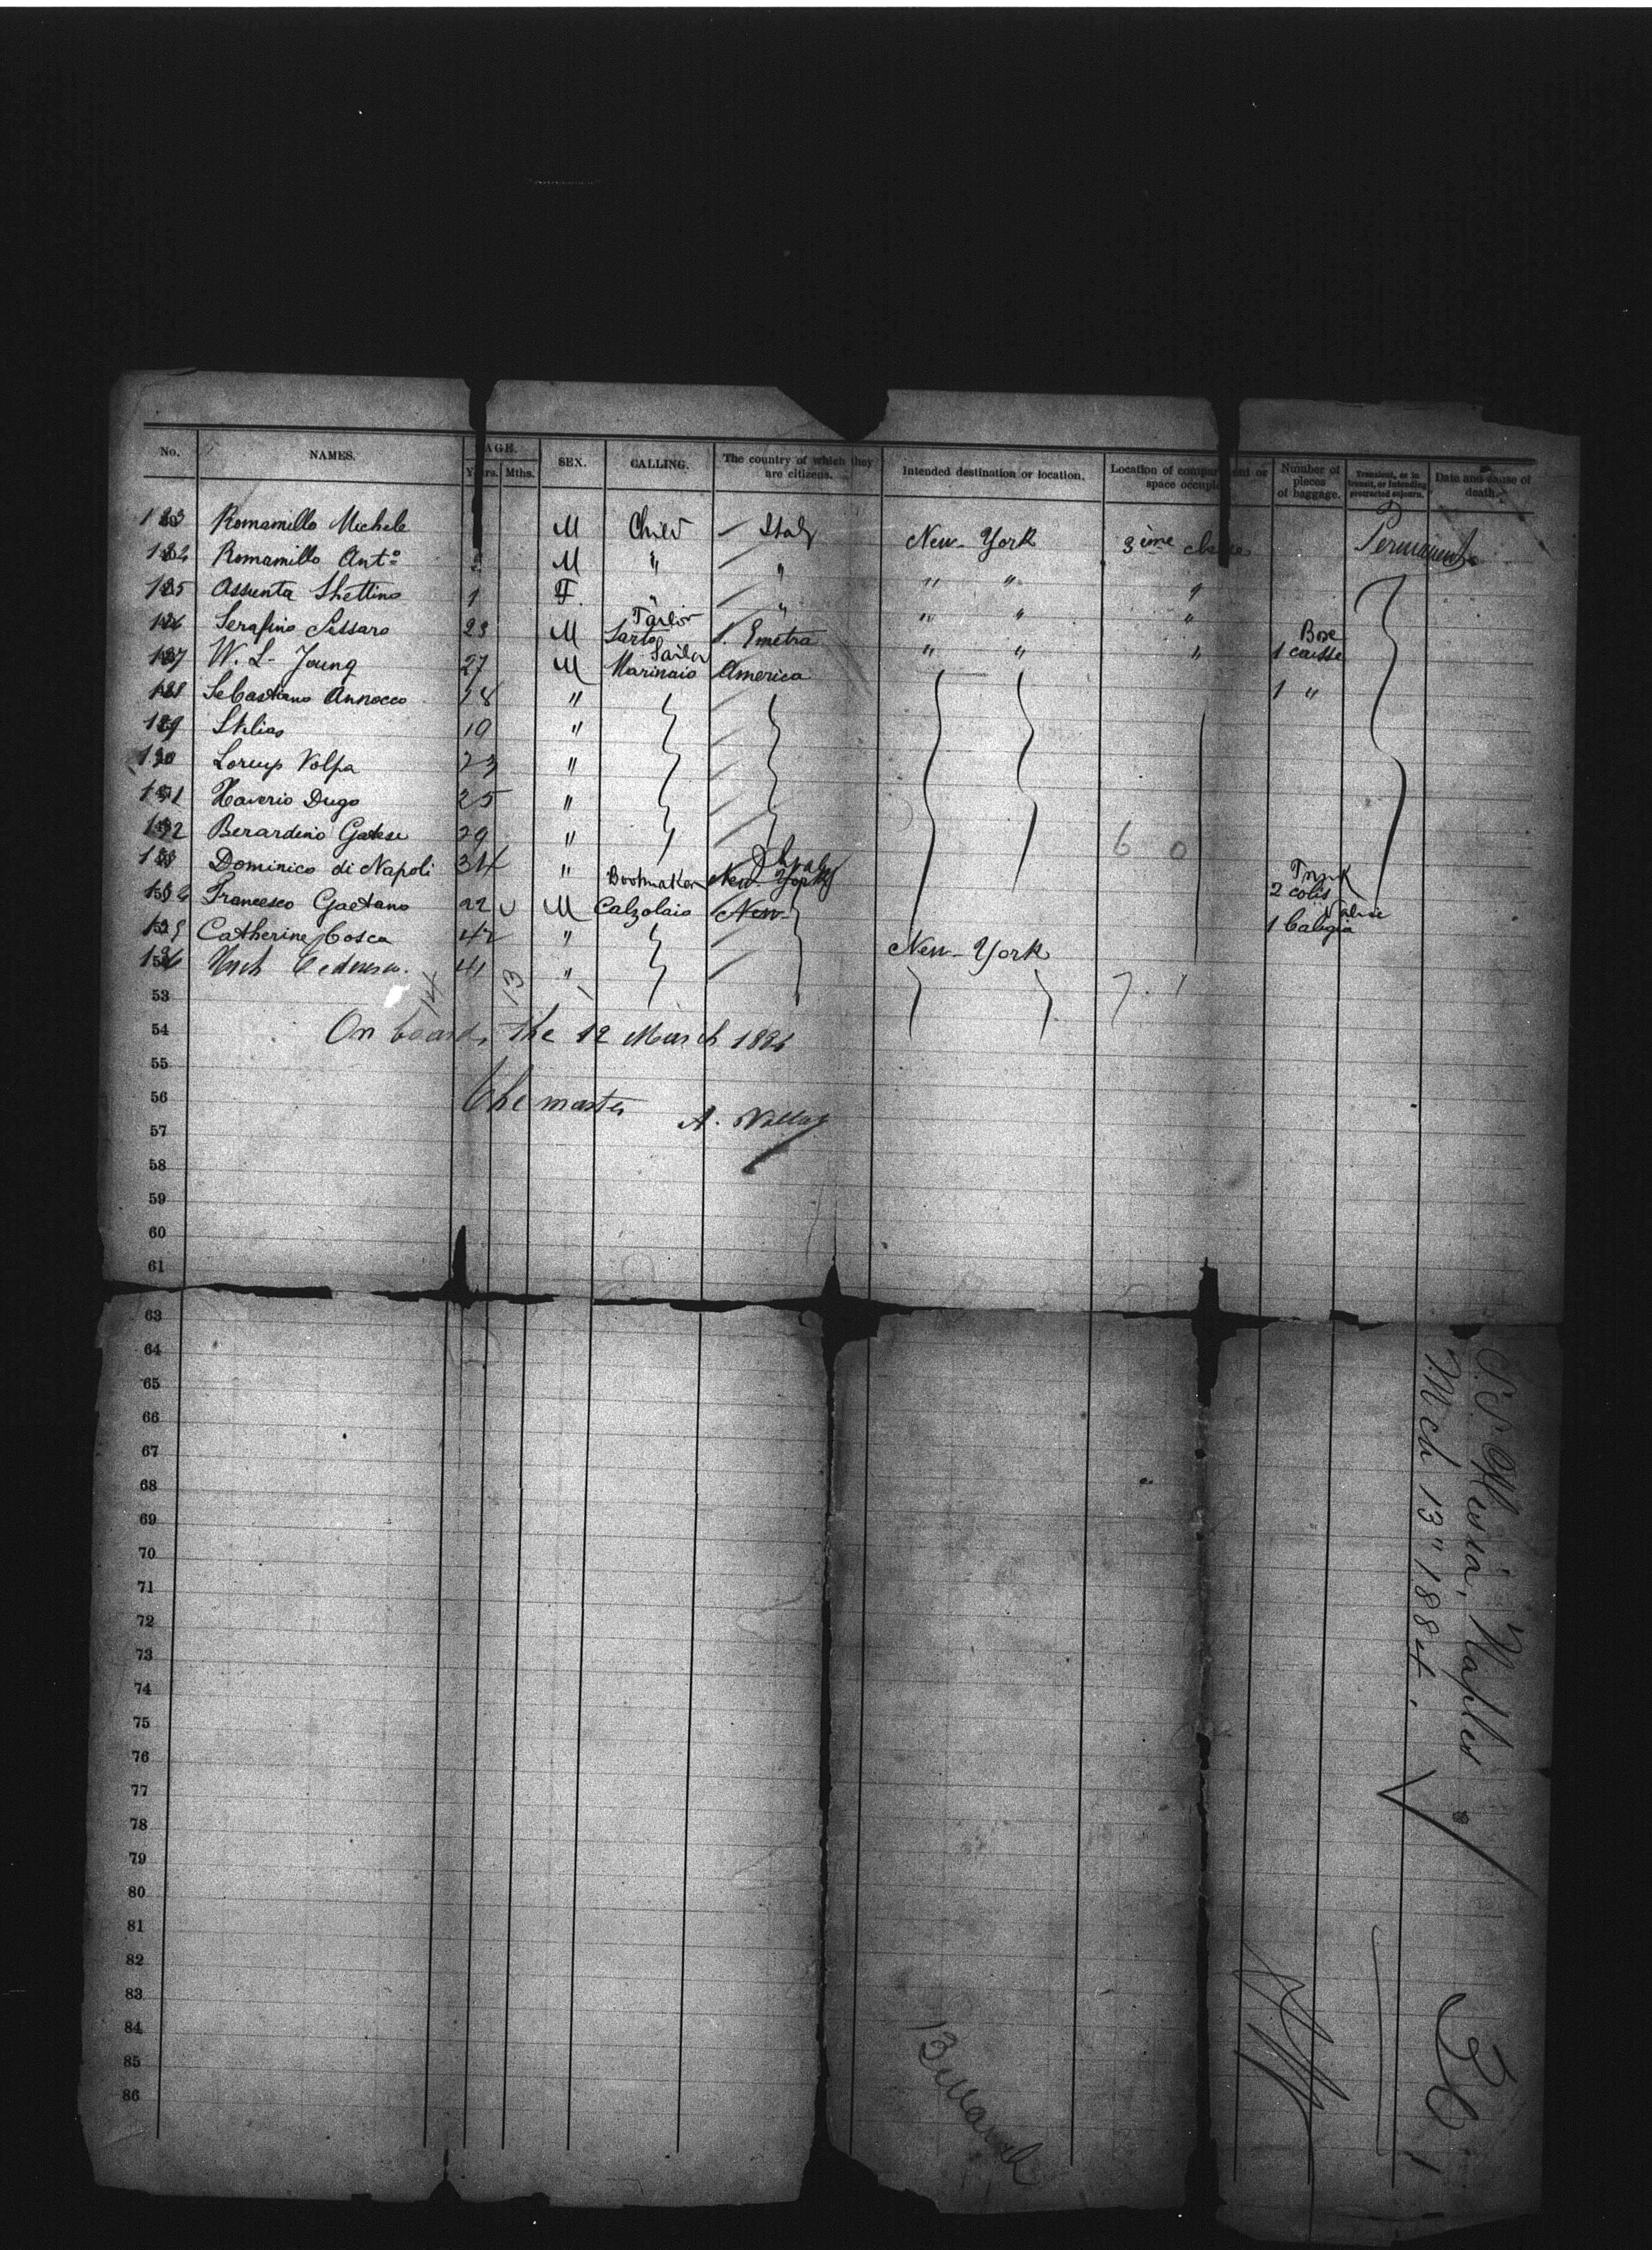 No. NAMES. AGE. SEX. CALLING. The country of which they are citizens. Intended destination or location. Location of compartment or space occupied Number of pieces of baggage. Transient, or in transit, or intending protracted sojourn. Date and cause of death.
Years. Mths.
183 Romamillo Michele M Child Italy New-York 3ème classe Permanent
184 Romamillo Ant° M " " " " "
185 Assunta Shettino 1 F. " " " " "
Tailor Box
186 Serafino Sissaro 23 M Sarto S. Emetra " " " 1 caisse
Sailor
187 W. L. Young 27 M Marinaio America 1 "
188 Sebastiano Annocco 28 "
189 Stelias 19 "
190 Volpa 23 "
191 Xaverio Dugo 25 "
192 Berardino Gatese 29 " 6 0
Italy Trunk
193 Dominico di Napoli 34 " Bootmaker New York 2 colis
Valise
194 Francesco Gaetano 22 M Calzolaio New 1 baligia
195 Catherine Cosca 42 " New-York
196 41 " 7. 1
53 14 13
54 On board, the 12 March 1884
55
56 The master
57 A.
58
59
60
61
63
64
65
66
67
68
69
70
71
72
73
74
75
76
77
78
79
80
81
82
83
84
85
86
Naples
Mch 13" 1884.